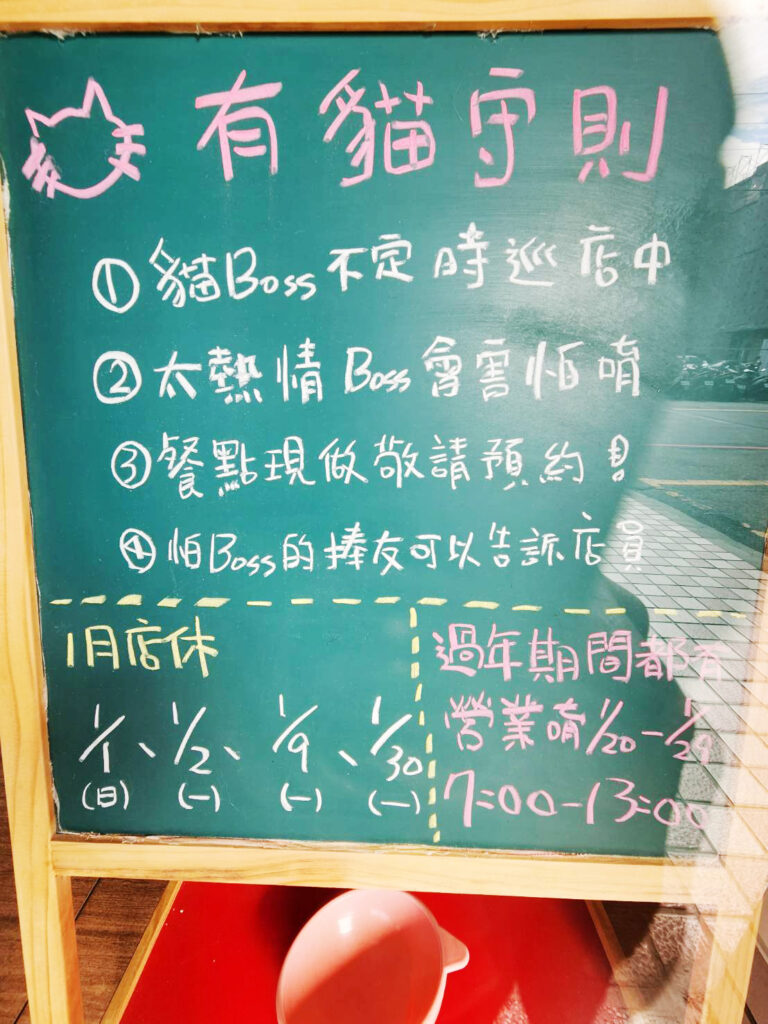 有貓守則
①貓Boss不定時巡店中
②太熱情Boss會害怕唷
③餐點現做敬請預約!
④怕Boss的捧友可以告訴店員
1月店休
1/1、1/2、1/9、1/30
(日) (一) (一) (一)
過年期間都有
營業唷1/20-1/29
7:00-13:00